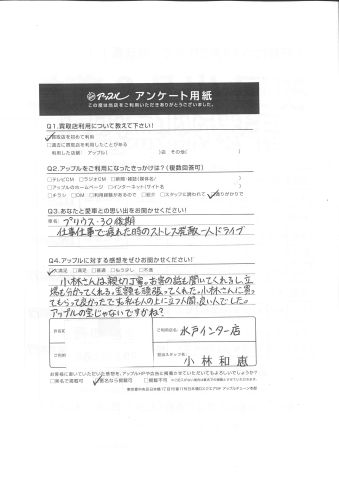 アップル アンケート用紙
この度は当店をご利用いただきありがとうございました。
Q1.買取店利用について教えて下さい!
買取店を初めて利用
□過去に買取店を利用したことがある
利用した店舗: アップル( )店 その他( )
Q2.アップルをご利用になったきっかけは?(複数回答可)
□テレビCM □ラジオCM □新聞・雑誌(媒体名/ )
□アップルのホームページ □インターネット(サイト名 )
□チラシ □DM □利用経験があるので □紹介 □スタッフに誘われて 通りがかりで
Q3.あなたと愛車との思い出をお聞かせください!
車名: プリウス・30後期
仕事仕事で疲れた時のストレス発散一人ドライブ
Q4.アップルに対する感想をぜひお聞かせください!
大満足 □満足 □普通 □もう少し □不満
小林さんは親切丁寧。お客の話も聞いてくれるし立
場も分かってくれる。金額も頑張ってくれた。小林さんに買っ
てもらって良かったです。私もの上に立つ人間、良い人でした。
アップルの宝じゃないですかね?
ご利用店名: 水戸インター店
担当スタッフ名: 小林和恵
お客様に書いていただいた感想を、アップルHPや店舗に掲載させていただいてもよろしいでしょうか?
□実名で掲載可 匿名なら掲載可 □掲載不可